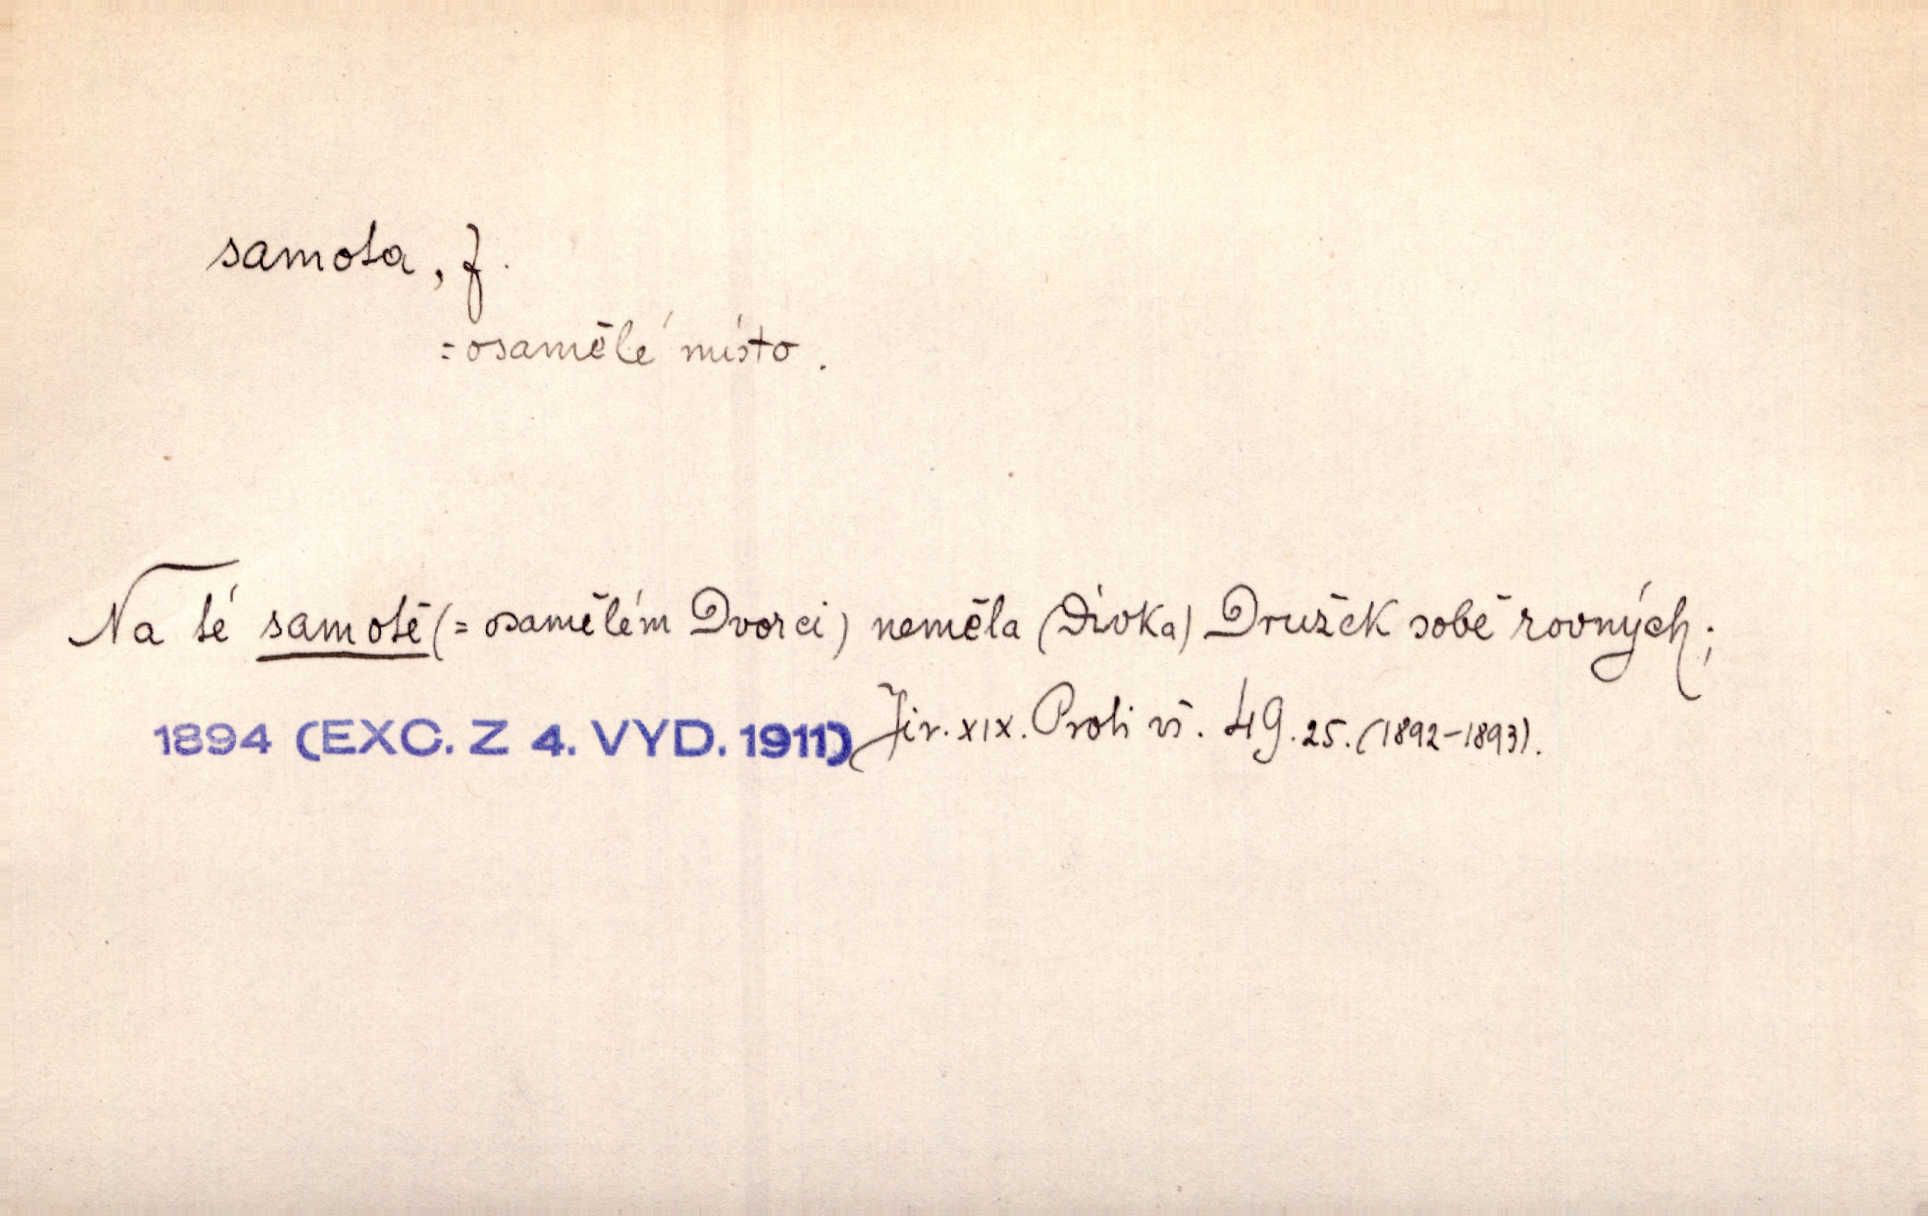 samota, f.
= osamělé místo.
Na té samotě (= osamělém Dvorci) neměla (Dívka) Družek sobě rovných;
1894 (EXC. Z 4. VYD. 1911) Jir. XIX. Proti vš. 49.25. (1892-1893).